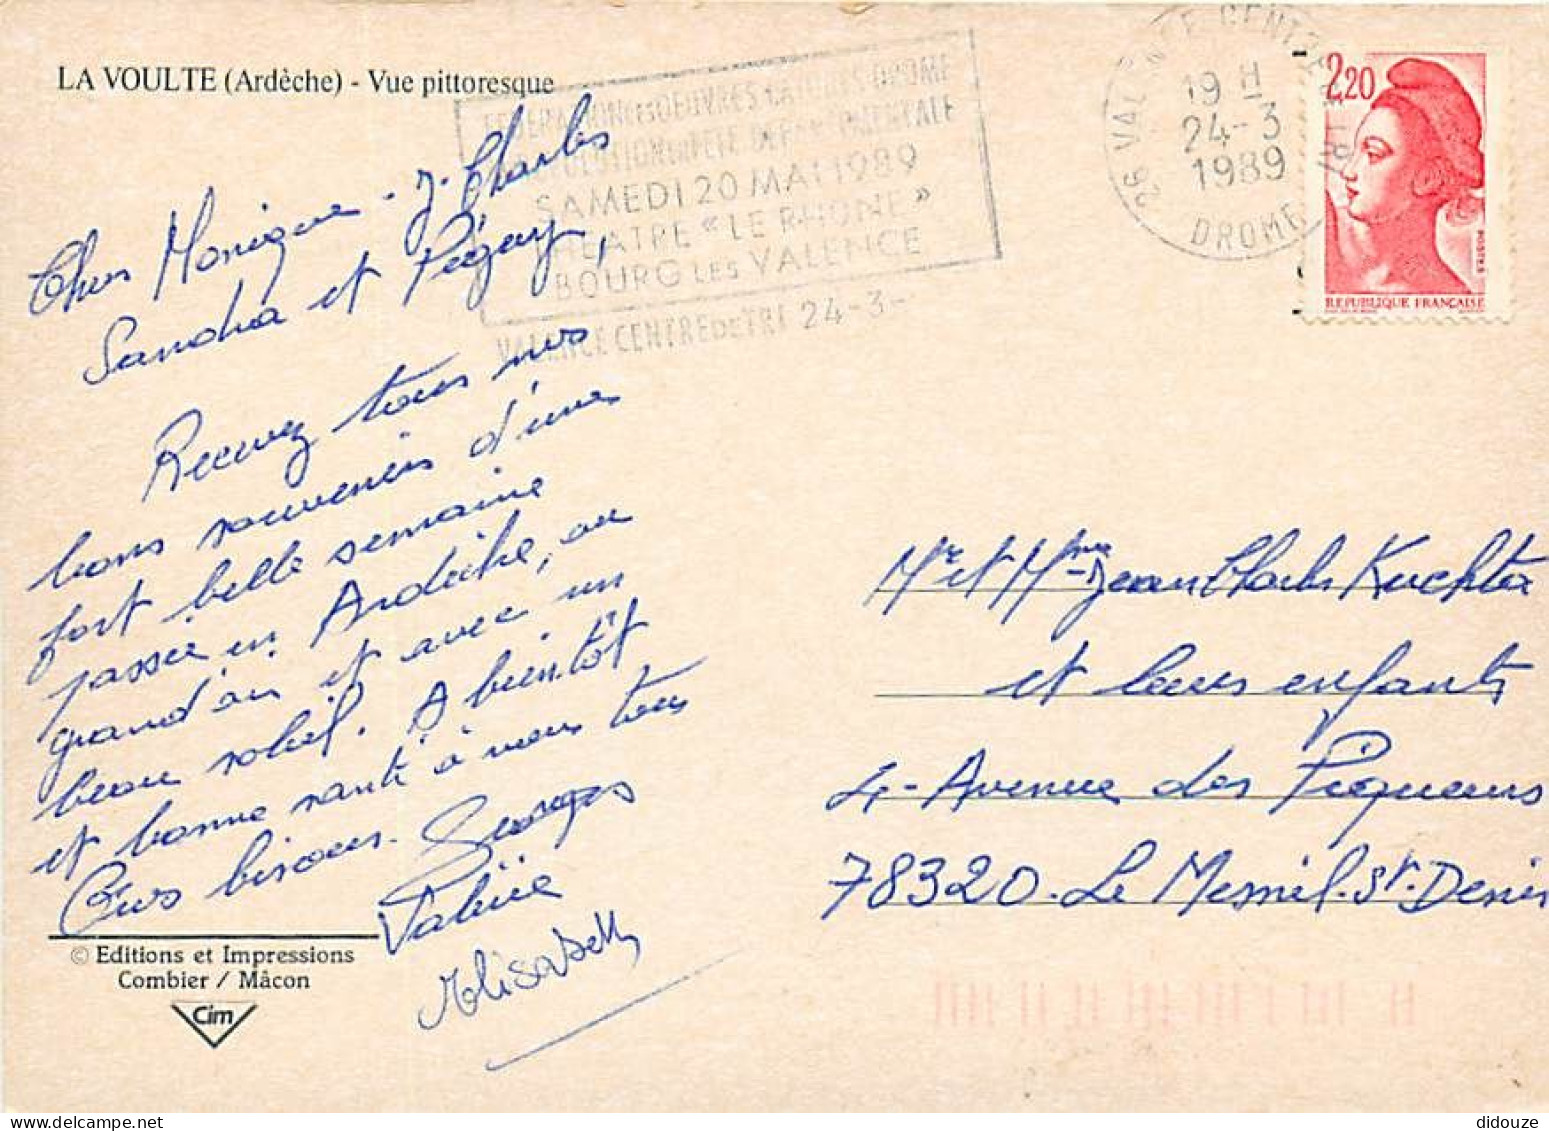 LA VOULTE (Ardèche) - Vue pittoresque
FEDERATION DES OEUVRES LAIQUES DROME
SAMEDI 20 MAI 1989
THEATRE « LE RHONE »
BOURG LES VALENCE
VALENCE CENTRE DE TRI 24-3-
26 VALENCE CENTRE DE TRI
19 H
24-3
1989
DROME
2,20
POSTES
REPUBLIQUE FRANÇAISE
Chers Monique - J. Charles
Sandra et Péguy,
Recevez tous nos
bons souvenirs d'une
fort belle semaine
passée en Ardèche, au
grand air et avec un
beau soleil. A bientôt
et bonne santé à vous tous
Gros bisous. Georges
Valérie
Elisabeth
Mr et Mme Jean Charles Kuchta
et leurs enfants
4 - Avenue des Piqueurs
78320 - Le Mesnil - St. Denis
© Editions et Impressions
Combier / Mâcon
Cim
didouze